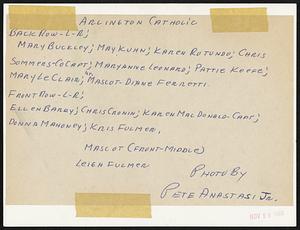 Arlington Catholic
Back Row-L-R;
Mary Buckley; May Kuhn; Karen Rotundo; Chris
Sommers-CoCapt; Maryanne Leonard; Pattie Keefe;
Mary LeClair; Mascot-Diane Ferretti
Front Row-L-R;
Ellen Barry; Chris Cronin; Karen MacDonald-Capt;
Donna Mahoney; Kris Fulmer.
Mascot (Front-Middle)
Leigh Fulmer
Photo By
Pete Anastasi Jr.
NOV